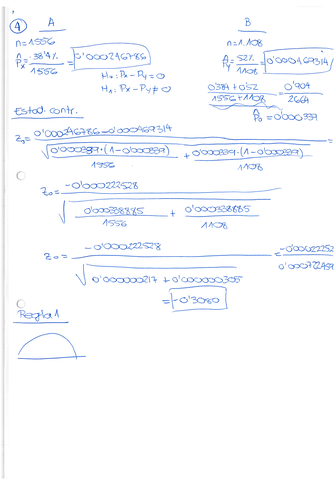 ④ A B
n=1556 n=1,108
P̂x = 38'4% / 1556 = 0'000246786 P̂y = 52% / 1108 = 0'000469314
H₀: Px - Py = 0
H₁: Px - Py ≠ 0
0'384 + 0'52 / 1556 + 1108 = 0'904 / 2664
P̂₀ = 0'000339
Estad. contr.
Z₀ = 0'000246786 - 0'000469314 / √ 0'000339 · (1 - 0'000339) / 1556 + 0'000339 · (1 - 0'000339) / 1108 =
Z₀ = -0'000222528 / √ 0'000338885 / 1556 + 0'000338885 / 1108
Z₀ = -0'000222528 / √ 0'000000217 + 0'000000305 = -0'00022252 / 0'000722459
= -0'3080
Regla 1